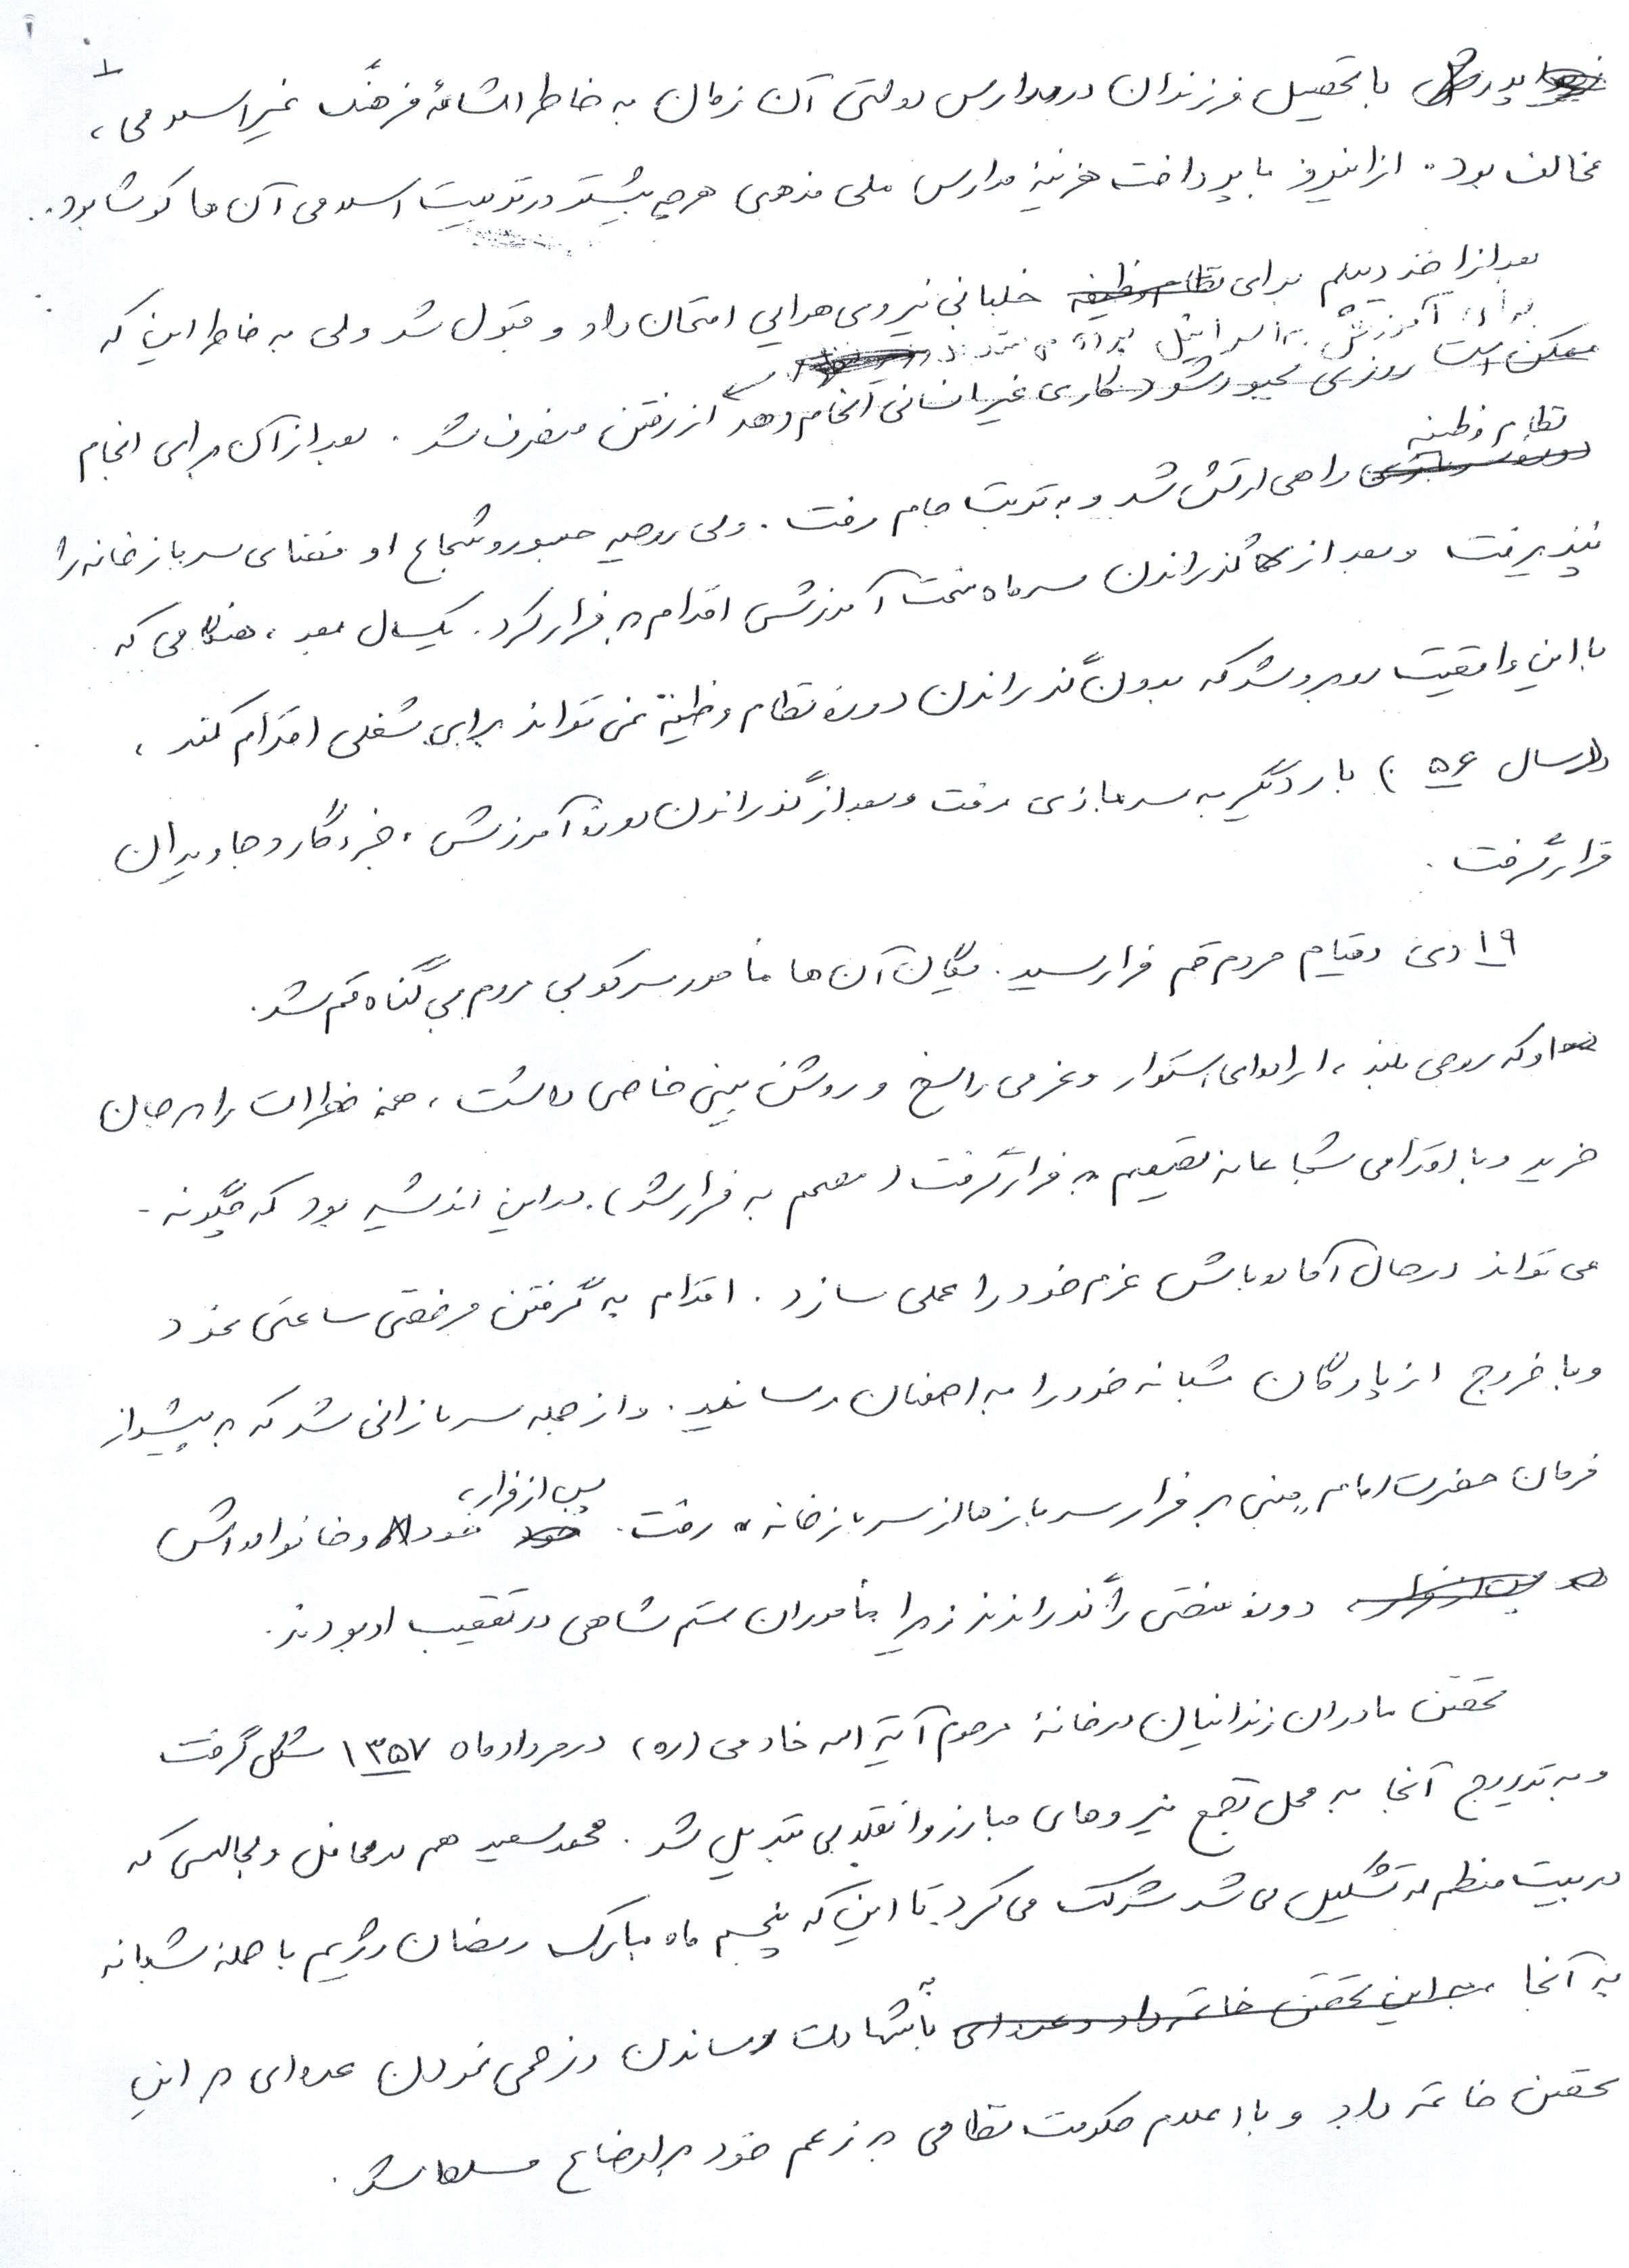 پدرش با تحصیل فرزندان در مدارس دولتی آن زمان به خاطر اشاعهٔ فرهنگ غیراسلامی،
مخالف بود. از اینرو با پرداخت هزینهٔ مدارس ملی مذهبی هرچه بیشتر در تربیت اسلامی آن ها کوشا بود.
بعد از اخذ دیپلم برای نظام وظیفه خلبانی نیروی هوایی امتحان داد و قبول شد ولی به خاطر این که
برای آموزش به اسرائیل
ممکن است روزی مجبور شود کاری غیرانسانی انجام دهد از رفتن منصرف شد. بعد از آن برای انجام
نظام وظیفه
راهی ارتش شد و به تربت جام رفت. ولی روحیه جسور و شجاع او فضای سربازخانه را
نپذیرفت و بعد از گذراندن سه ماه تحت آموزش اقدام به فرار کرد. یکسال بعد، هنگامی که
با این واقعیت روبرو شد که بدون گذراندن دوره نظام وظیفه نمی تواند برای شغلی اقدام کند،
(در سال ۵۶) بار دیگر به سربازی رفت و بعد از گذراندن دورهٔ آموزش، جزء گارد جاویدان
قرار گرفت.
۱۹ دی و قیام مردم قم فرا رسید. یگان آن ها مأمور سرکوبی مردم بی گناه قم شد.
او که روحی بلند، اراده ای استوار و عزمی راسخ و روشن بینی خاصی داشت، همه خطرات را به جان
خرید و با اقدامی شجاعانه تصمیم به فرار گرفت (مصمم به فرار شد). در این اندیشه بود که چگونه
می تواند در حال آماده باش عزم خود را عملی سازد. اقدام به گرفتن مرخصی ساعتی نمود
و با خروج از پادگان شبانه خود را به اصفهان رسانید. و از جمله سربازانی شد که به پیشواز
پس از فرار،
فرمان حضرت امام مبنی بر فرار سربازها از سربازخانه رفت. خود خود و خانواده اش
دوره سختی را گذراندند زیرا مأموران ستم شاهی در تعقیب او بودند.
تحصن مادران زندانیان در خانهٔ مرحوم آیة الله خادمی (ره) در مرداد ماه ۱۳۵۷ شکل گرفت
و به تدریج آنجا به محل تجمع نیروهای مبارز و انقلابی تبدیل شد. محمدسعید هم در محافل و مجالسی که
در بیت معظم له تشکیل می شد شرکت می کرد تا این که پنجم ماه مبارک رمضان رژیم با حمله شبانه
به آنجا به این تحصن خاتمه داد و عده ای با به شهادت رساندن و زخمی نمودن عده ای به این
تحصن خاتمه داد و با اعلام حکومت نظامی به زعم خود بر اوضاع مسلط شد.